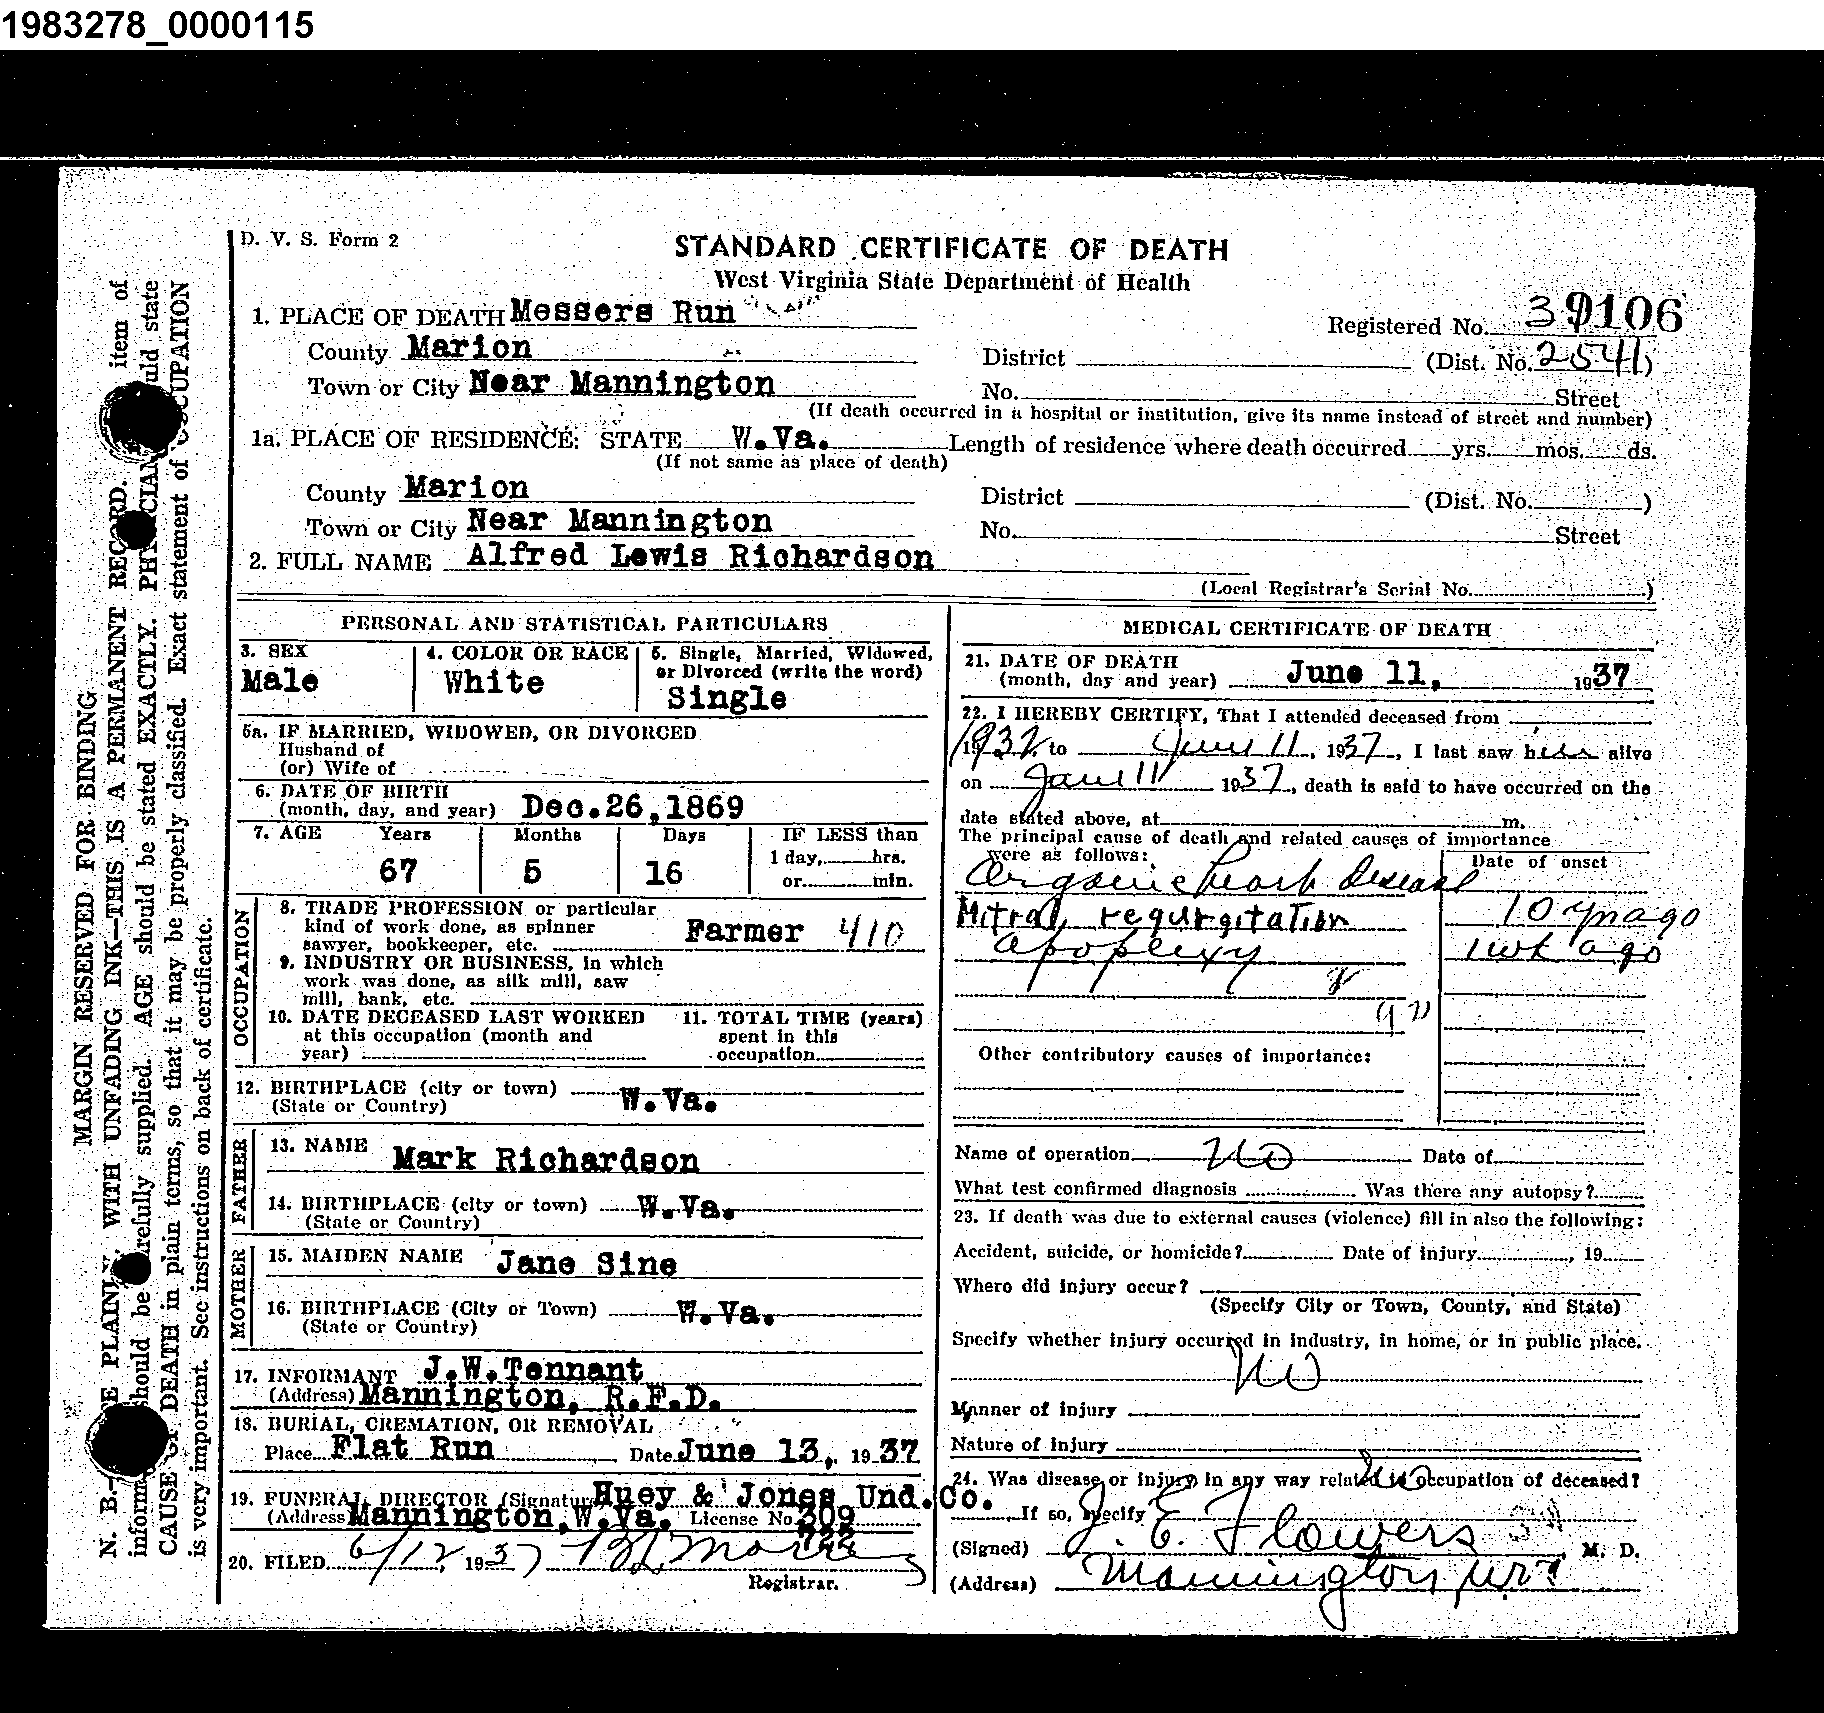 1983278_0000115
D. V. S. Form 2
STANDARD CERTIFICATE OF DEATH
West Virginia State Department of Health
1. PLACE OF DEATH Messers Run
Registered No. 39106
County Marion
District (Dist. No. 2541)
Town or City Near Mannington
No. Street
(If death occurred in a hospital or institution, give its name instead of street and number)
1a. PLACE OF RESIDENCE: STATE W.Va. Length of residence where death occurred yrs. mos. ds.
(If not same as place of death)
County Marion
District (Dist. No. )
Town or City Near Mannington
No. Street
2. FULL NAME Alfred Lewis Richardson
(Local Registrar's Serial No. )
PERSONAL AND STATISTICAL PARTICULARS
3. SEX
Male
4. COLOR OR RACE
White
5. Single, Married, Widowed,
or Divorced (write the word)
Single
5a. IF MARRIED, WIDOWED, OR DIVORCED
Husband of
(or) Wife of
6. DATE OF BIRTH
(month, day, and year) Dec.26,1869
7. AGE Years Months Days IF LESS than
67 5 16
1 day, hrs.
or min.
OCCUPATION
8. TRADE PROFESSION or particular
kind of work done, as spinner
sawyer, bookkeeper, etc. Farmer 410
9. INDUSTRY OR BUSINESS, in which
work was done, as silk mill, saw
mill, bank, etc.
10. DATE DECEASED LAST WORKED
at this occupation (month and
year)
11. TOTAL TIME (years)
spent in this
occupation
12. BIRTHPLACE (city or town)
(State or Country) W.Va.
FATHER
13. NAME Mark Richardson
14. BIRTHPLACE (city or town) W.Va.
(State or Country)
MOTHER
15. MAIDEN NAME Jane Sine
16. BIRTHPLACE (City or Town) W.Va.
(State or Country)
17. INFORMANT J.W.Tennant
(Address) Mannington, R.F.D.
18. BURIAL, CREMATION, OR REMOVAL
Place Flat Run Date June 13, 1937
19. FUNERAL DIRECTOR (Signature) Huey & Jones Und.Co.
(Address) Mannington,W.Va. License No. 309
20. FILED 6/12, 1937
Registrar.
MEDICAL CERTIFICATE OF DEATH
21. DATE OF DEATH
(month, day and year) June 11, 1937
22. I HEREBY CERTIFY, That I attended deceased from
1932 to June 11, 1937, I last saw him alive
on June 11 1937, death is said to have occurred on the
date stated above, at m.
The principal cause of death and related causes of importance
were as follows:
Date of onset
Organic heart disease
Mitral regurgitation 10 yrs ago
apoplexy 1 wk ago
Other contributory causes of importance:
Name of operation no Date of
What test confirmed diagnosis Was there any autopsy?
23. If death was due to external causes (violence) fill in also the following:
Accident, suicide, or homicide? Date of injury , 19
Where did injury occur?
(Specify City or Town, County, and State)
Specify whether injury occurred in industry, in home, or in public place.
no
Manner of injury
Nature of injury
24. Was disease or injury in any way related to occupation of deceased? no
If so, specify
(Signed) J. E. Flowers M. D.
(Address) Mannington W.Va
MARGIN RESERVED FOR BINDING
N. B.— PLAINLY, WITH UNFADING INK—THIS IS A PERMANENT RECORD. item of
should be carefully supplied. AGE should be stated EXACTLY. PHYSICIAN should state
CAUSE OF DEATH in plain terms, so that it may be properly classified. Exact statement of OCCUPATION
is very important. See instructions on back of certificate.